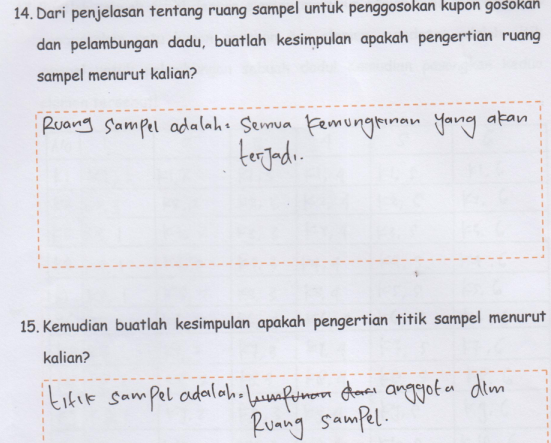 14. Dari penjelasan tentang ruang sampel untuk penggosokan kupon gosokan
dan pelambungan dadu, buatlah kesimpulan apakah pengertian ruang
sampel menurut kalian?
Ruang Sampel adalah: Semua Kemungkinan yang akan
terjadi.
15. Kemudian buatlah kesimpulan apakah pengertian titik sampel menurut
kalian?
titik sampel adalah: anggota dlm
Ruang Sampel.